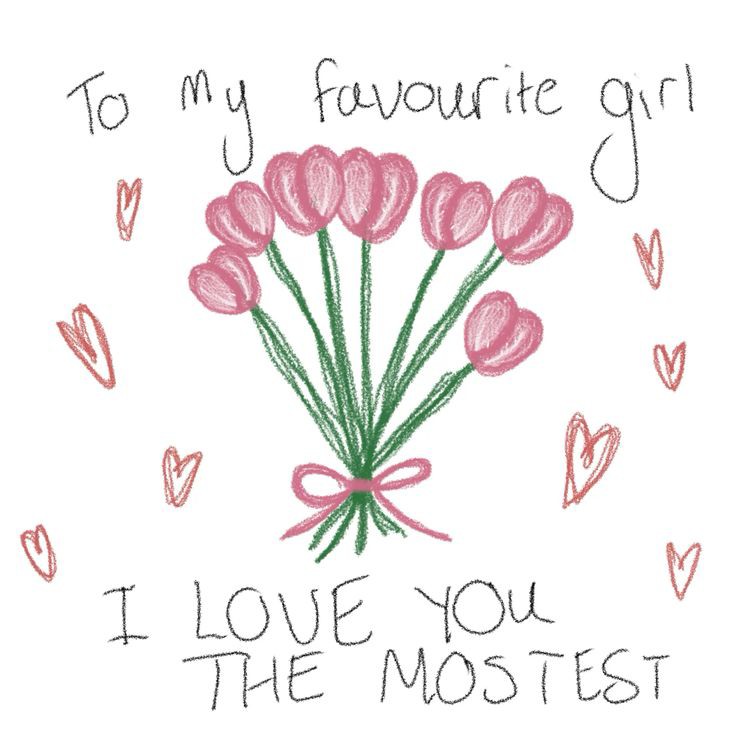 To my favourite girl
I LOVE YOU
THE MOSTEST